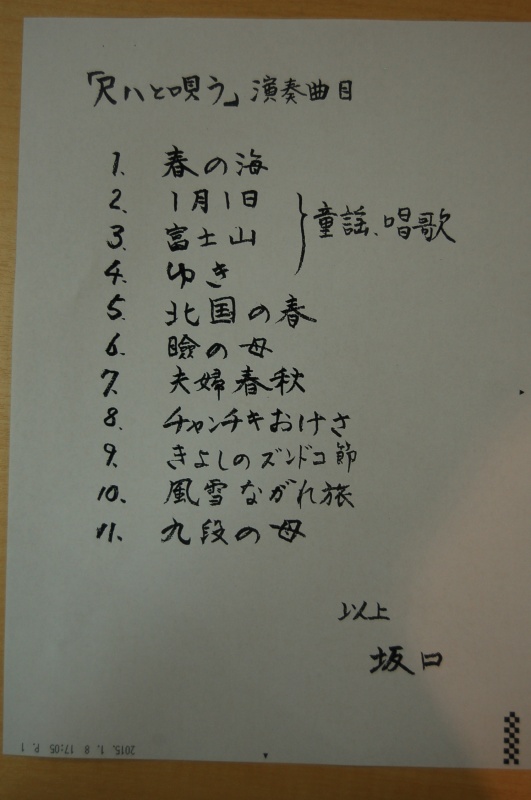 「尺八と唄う」演奏曲目
1. 春の海
2. 1月1日
3. 富士山
童謡、唱歌
4. ゆき
5. 北国の春
6. 瞼の母
7. 夫婦春秋
8. チャンチキおけさ
9. きよしのズンドコ節
10. 風雪ながれ旅
11. 九段の母
以上
坂口
2015. 1. 8 17:05 P. 1